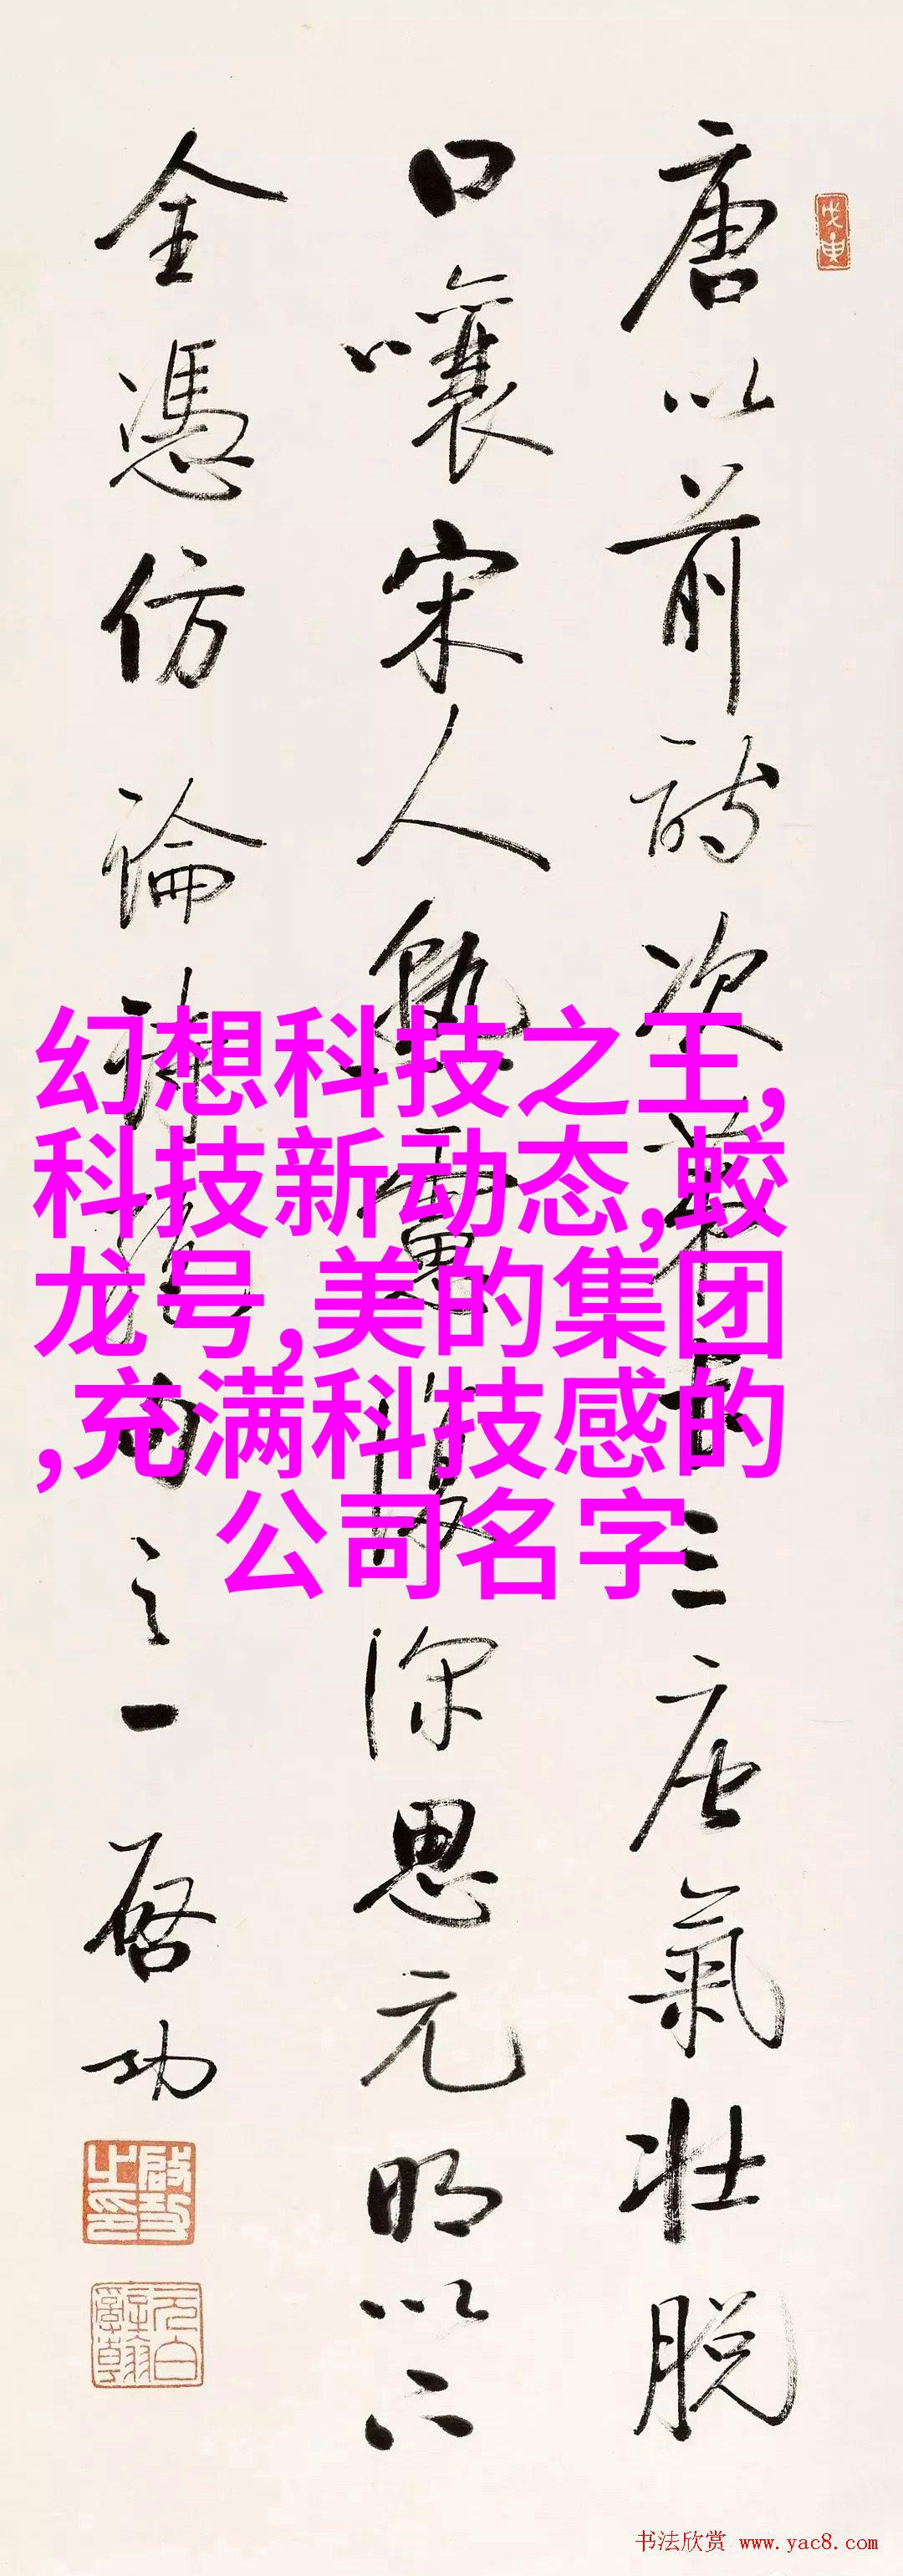 唐以前詩次第長三唐氣壯脫
口嚷宋人熟慮復深思元明以下
全憑仿 論詩絕句之一 啓功
幻想科技之王,
科技新动态,蛟
龙号,美的集团
,充满科技感的
公司名字
书法欣赏 www.yac8.com